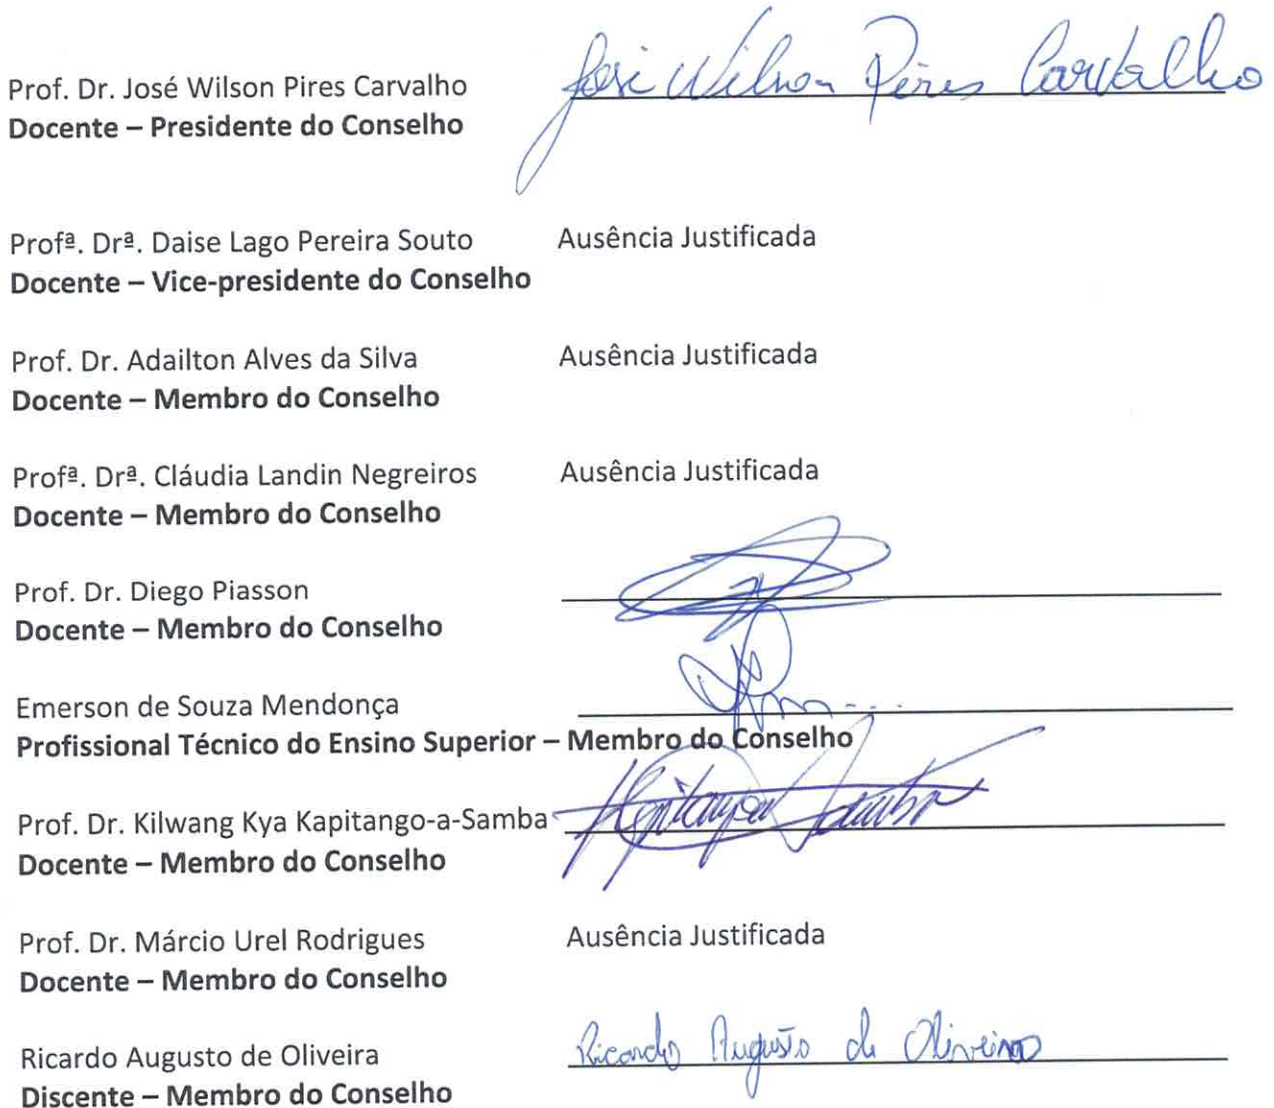 Prof. Dr. José Wilson Pires Carvalho José Wilson Pires Carvalho
Docente – Presidente do Conselho
Profª. Drª. Daise Lago Pereira Souto Ausência Justificada
Docente – Vice-presidente do Conselho
Prof. Dr. Adailton Alves da Silva Ausência Justificada
Docente – Membro do Conselho
Profª. Drª. Cláudia Landin Negreiros Ausência Justificada
Docente – Membro do Conselho
Prof. Dr. Diego Piasson
Docente – Membro do Conselho
Emerson de Souza Mendonça
Profissional Técnico do Ensino Superior – Membro do Conselho
Prof. Dr. Kilwang Kya Kapitango-a-Samba
Docente – Membro do Conselho
Prof. Dr. Márcio Urel Rodrigues Ausência Justificada
Docente – Membro do Conselho
Ricardo Augusto de Oliveira Ricardo Augusto de Oliveira
Discente – Membro do Conselho